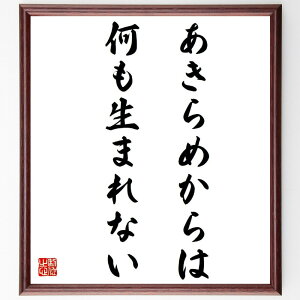 あきらめからは
何も生まれない